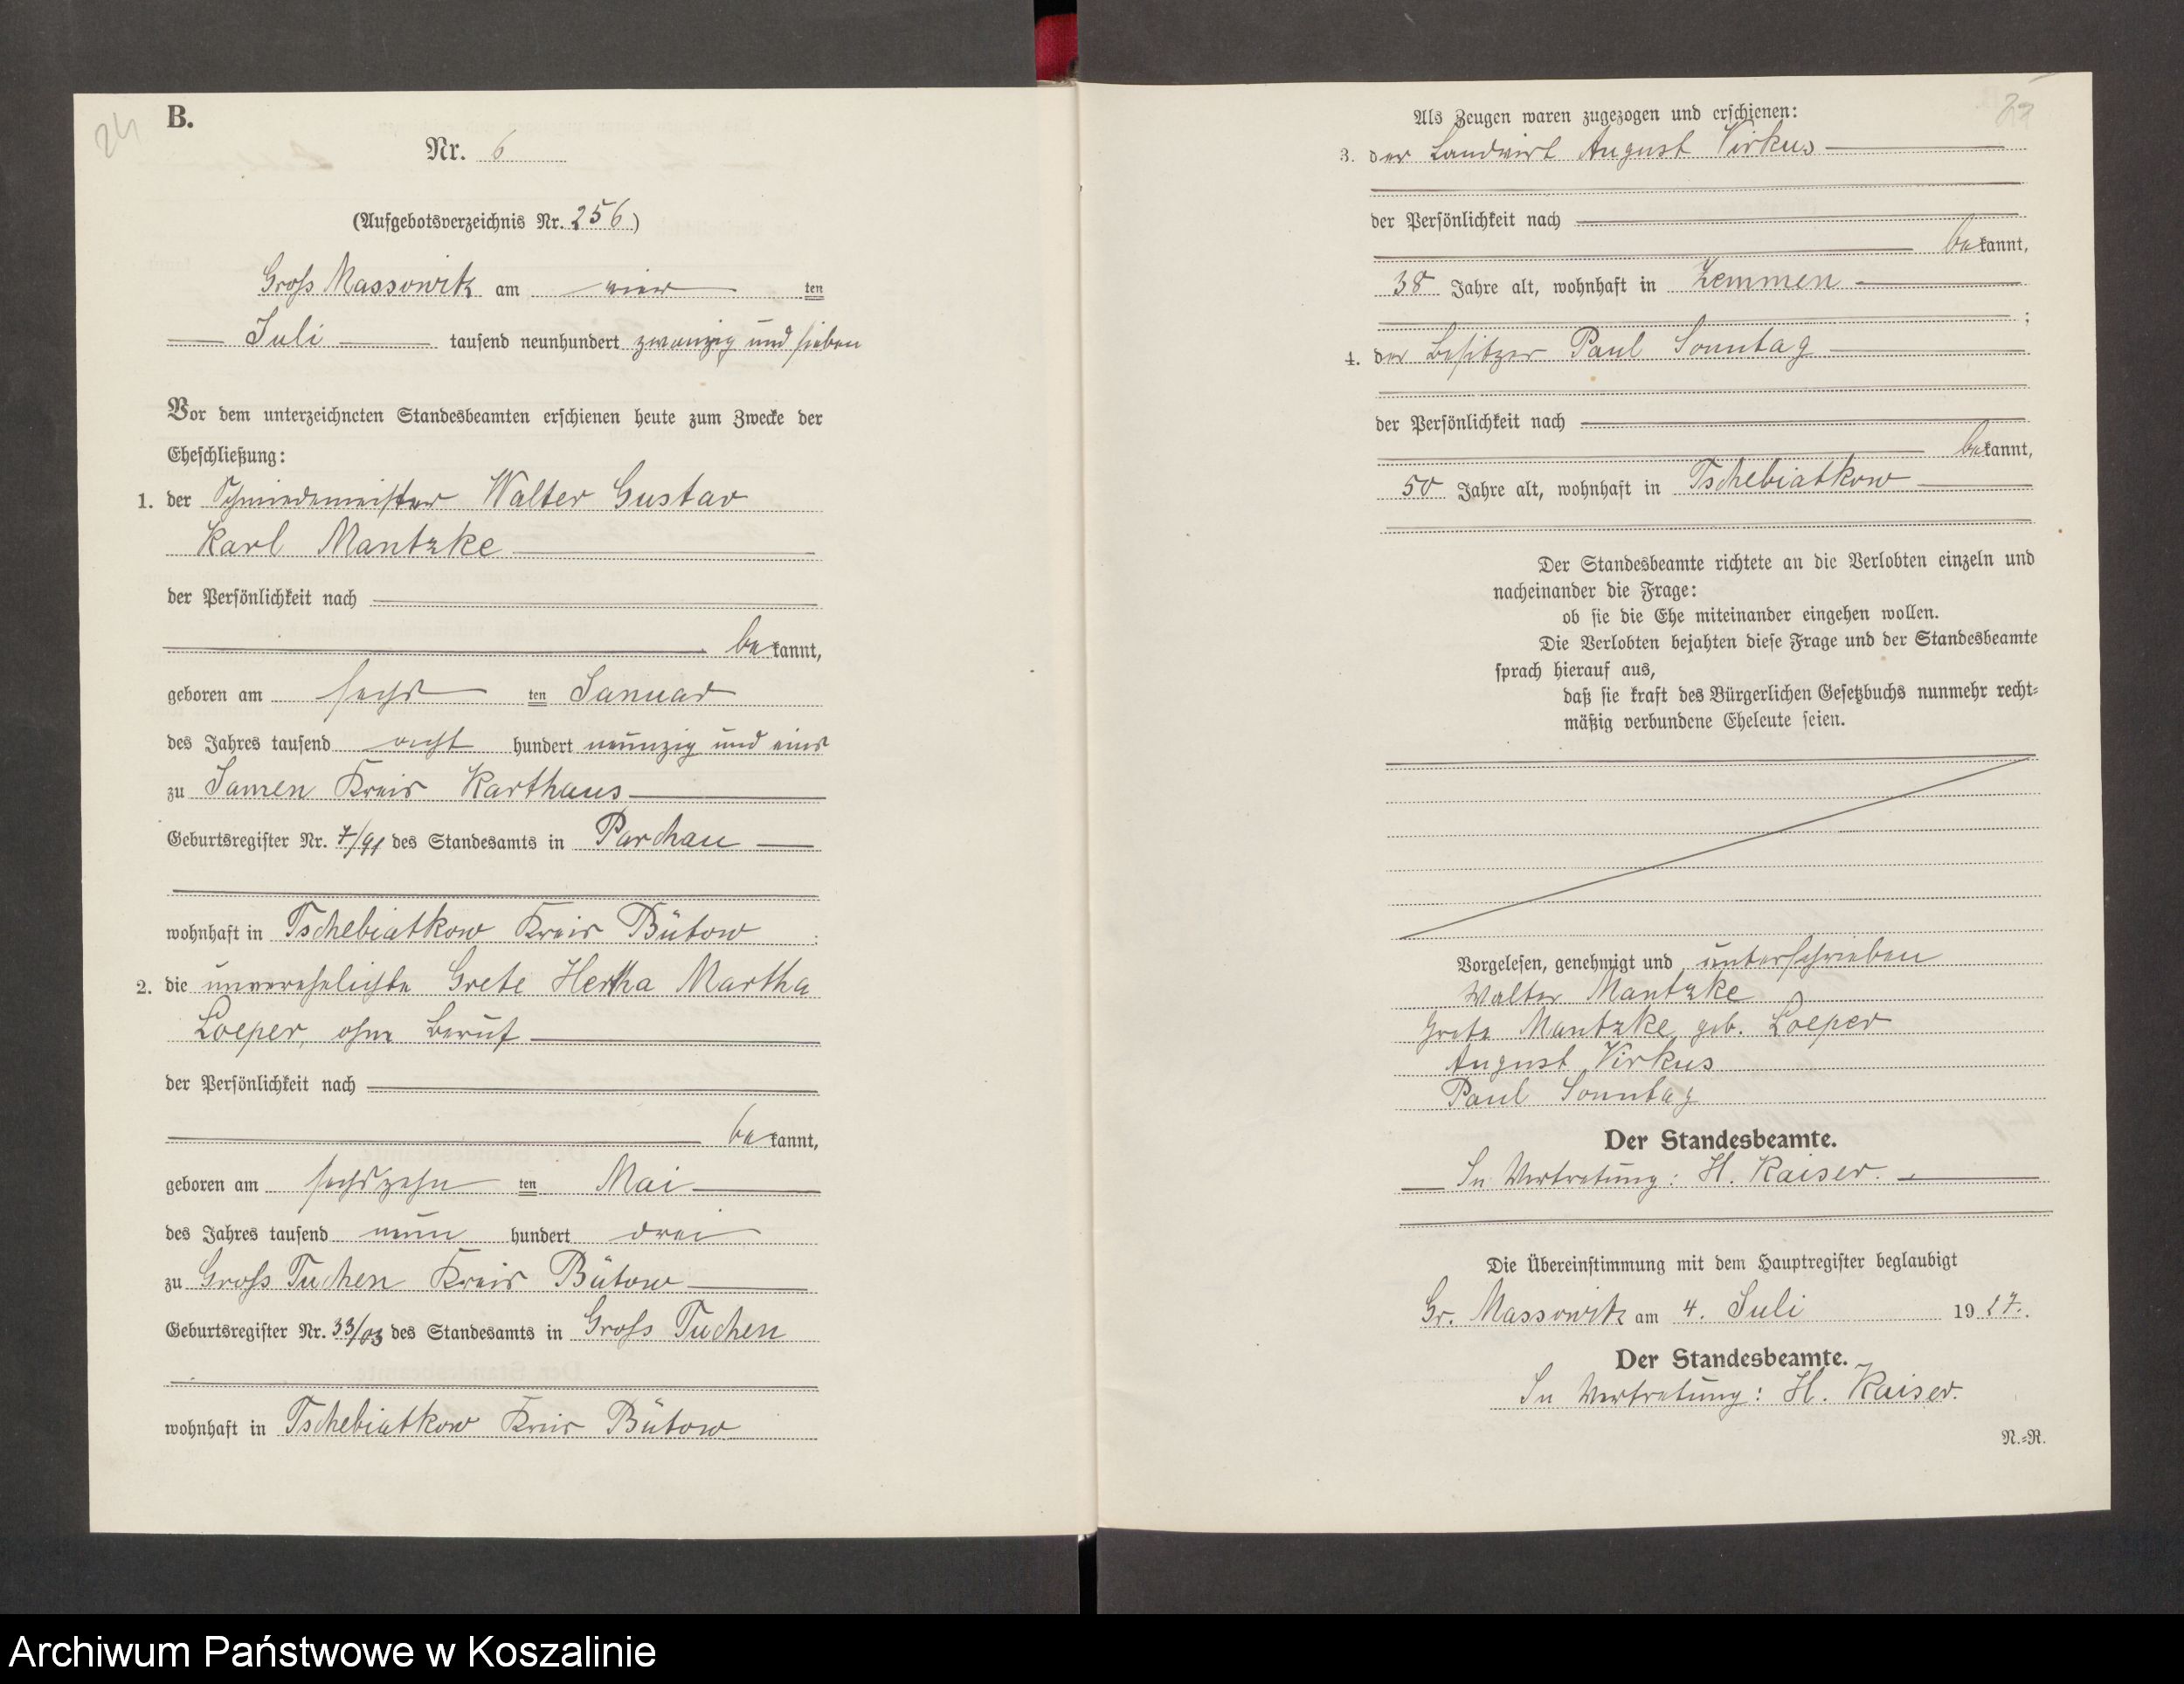 24
B.
Nr. 6
(Aufgebotsverzeichnis Nr. 256)
Gross Massowitz am vier ten
Juli tausend neunhundert zwanzig und sieben
Vor dem unterzeichneten Standesbeamten erschienen heute zum Zwecke der
Eheschließung:
1. der Schmiedemeister Walter Gustav
Karl Mantzke
der Persönlichkeit nach
bekannt,
geboren am sechs ten Januar
des Jahres tausend acht hundert neunzig und eins
zu Jamen Kreis Karthaus
Geburtsregister Nr. 7/91 des Standesamts in Parchau
wohnhaft in Tschebiatkow Kreis Bütow ;
2. die unverehelichte Grete Hertha Martha
Loeper, ohne Beruf
der Persönlichkeit nach
bekannt,
geboren am sechszehn ten Mai
des Jahres tausend neun hundert drei
zu Gross Tuchen Kreis Bütow
Geburtsregister Nr. 33/03 des Standesamts in Gross Tuchen
wohnhaft in Tschebiatkow Kreis Bütow
Als Zeugen waren zugezogen und erschienen:
3. der Landwirt August Virkus
der Persönlichkeit nach
bekannt,
38 Jahre alt, wohnhaft in Zemmen
;
4. der Besitzer Paul Sonntag
der Persönlichkeit nach
bekannt,
50 Jahre alt, wohnhaft in Tschebiatkow
Der Standesbeamte richtete an die Verlobten einzeln und
nacheinander die Frage:
ob sie die Ehe miteinander eingehen wollen.
Die Verlobten bejahten diese Frage und der Standesbeamte
sprach hierauf aus,
daß sie kraft des Bürgerlichen Gesetzbuchs nunmehr recht-
mäßig verbundene Eheleute seien.
Vorgelesen, genehmigt und unterschrieben
Walter Mantzke
Grete Mantzke geb. Loeper
August Virkus
Paul Sonntag
Der Standesbeamte.
In Vertretung: H. Kaiser.
Die Übereinstimmung mit dem Hauptregister beglaubigt
Gr. Massowitz am 4. Juli 1927.
Der Standesbeamte.
In Vertretung: H. Kaiser.
N.-R.
Archiwum Państwowe w Koszalinie